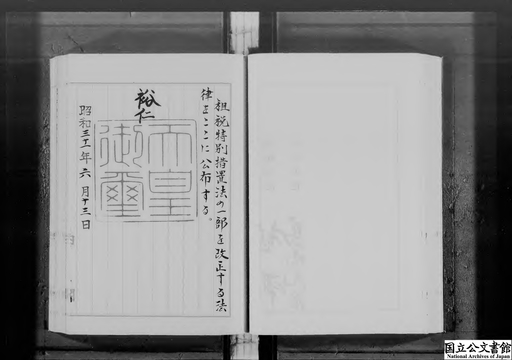 租税特別措置法の一部を改正する法
律をここに公布する。
裕仁
天皇
御璽
昭和三十二年六月十三日
国立公文書館
National Archives of Japan